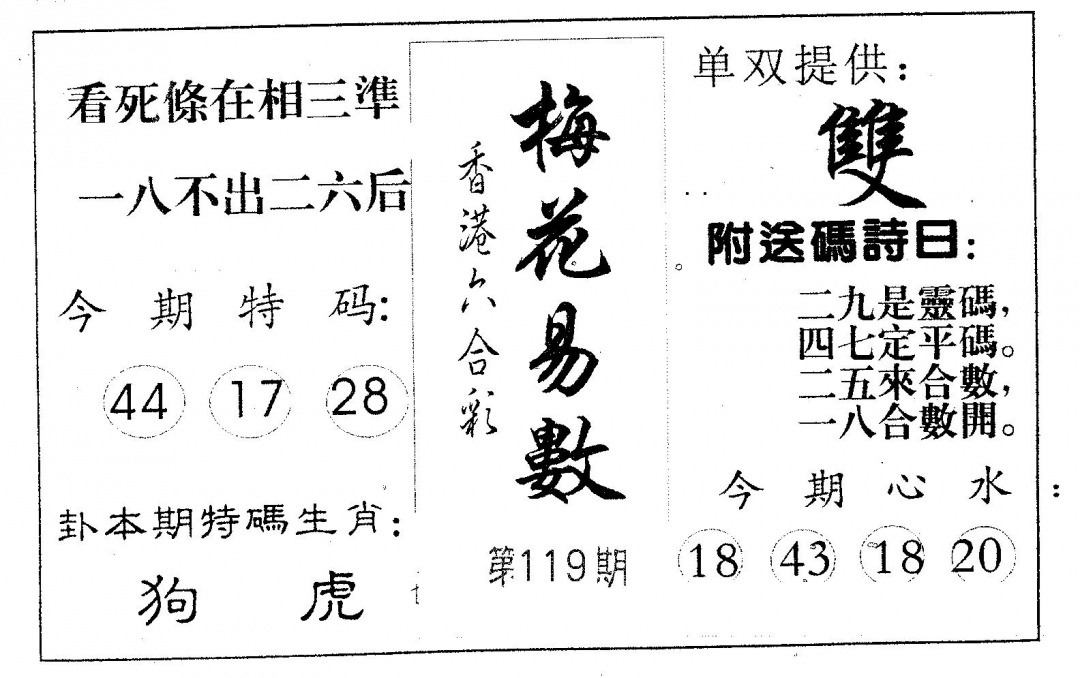 看死條在相三準
一八不出二六后
今期特码:
44 17 28
卦本期特碼生肖:
狗 虎
梅花易數
香港六合彩
第119期
单双提供:
雙
附送碼詩曰:
二九是靈碼,
四七定平碼。
二五來合數,
一八合數開。
今期心水:
18 43 18 20